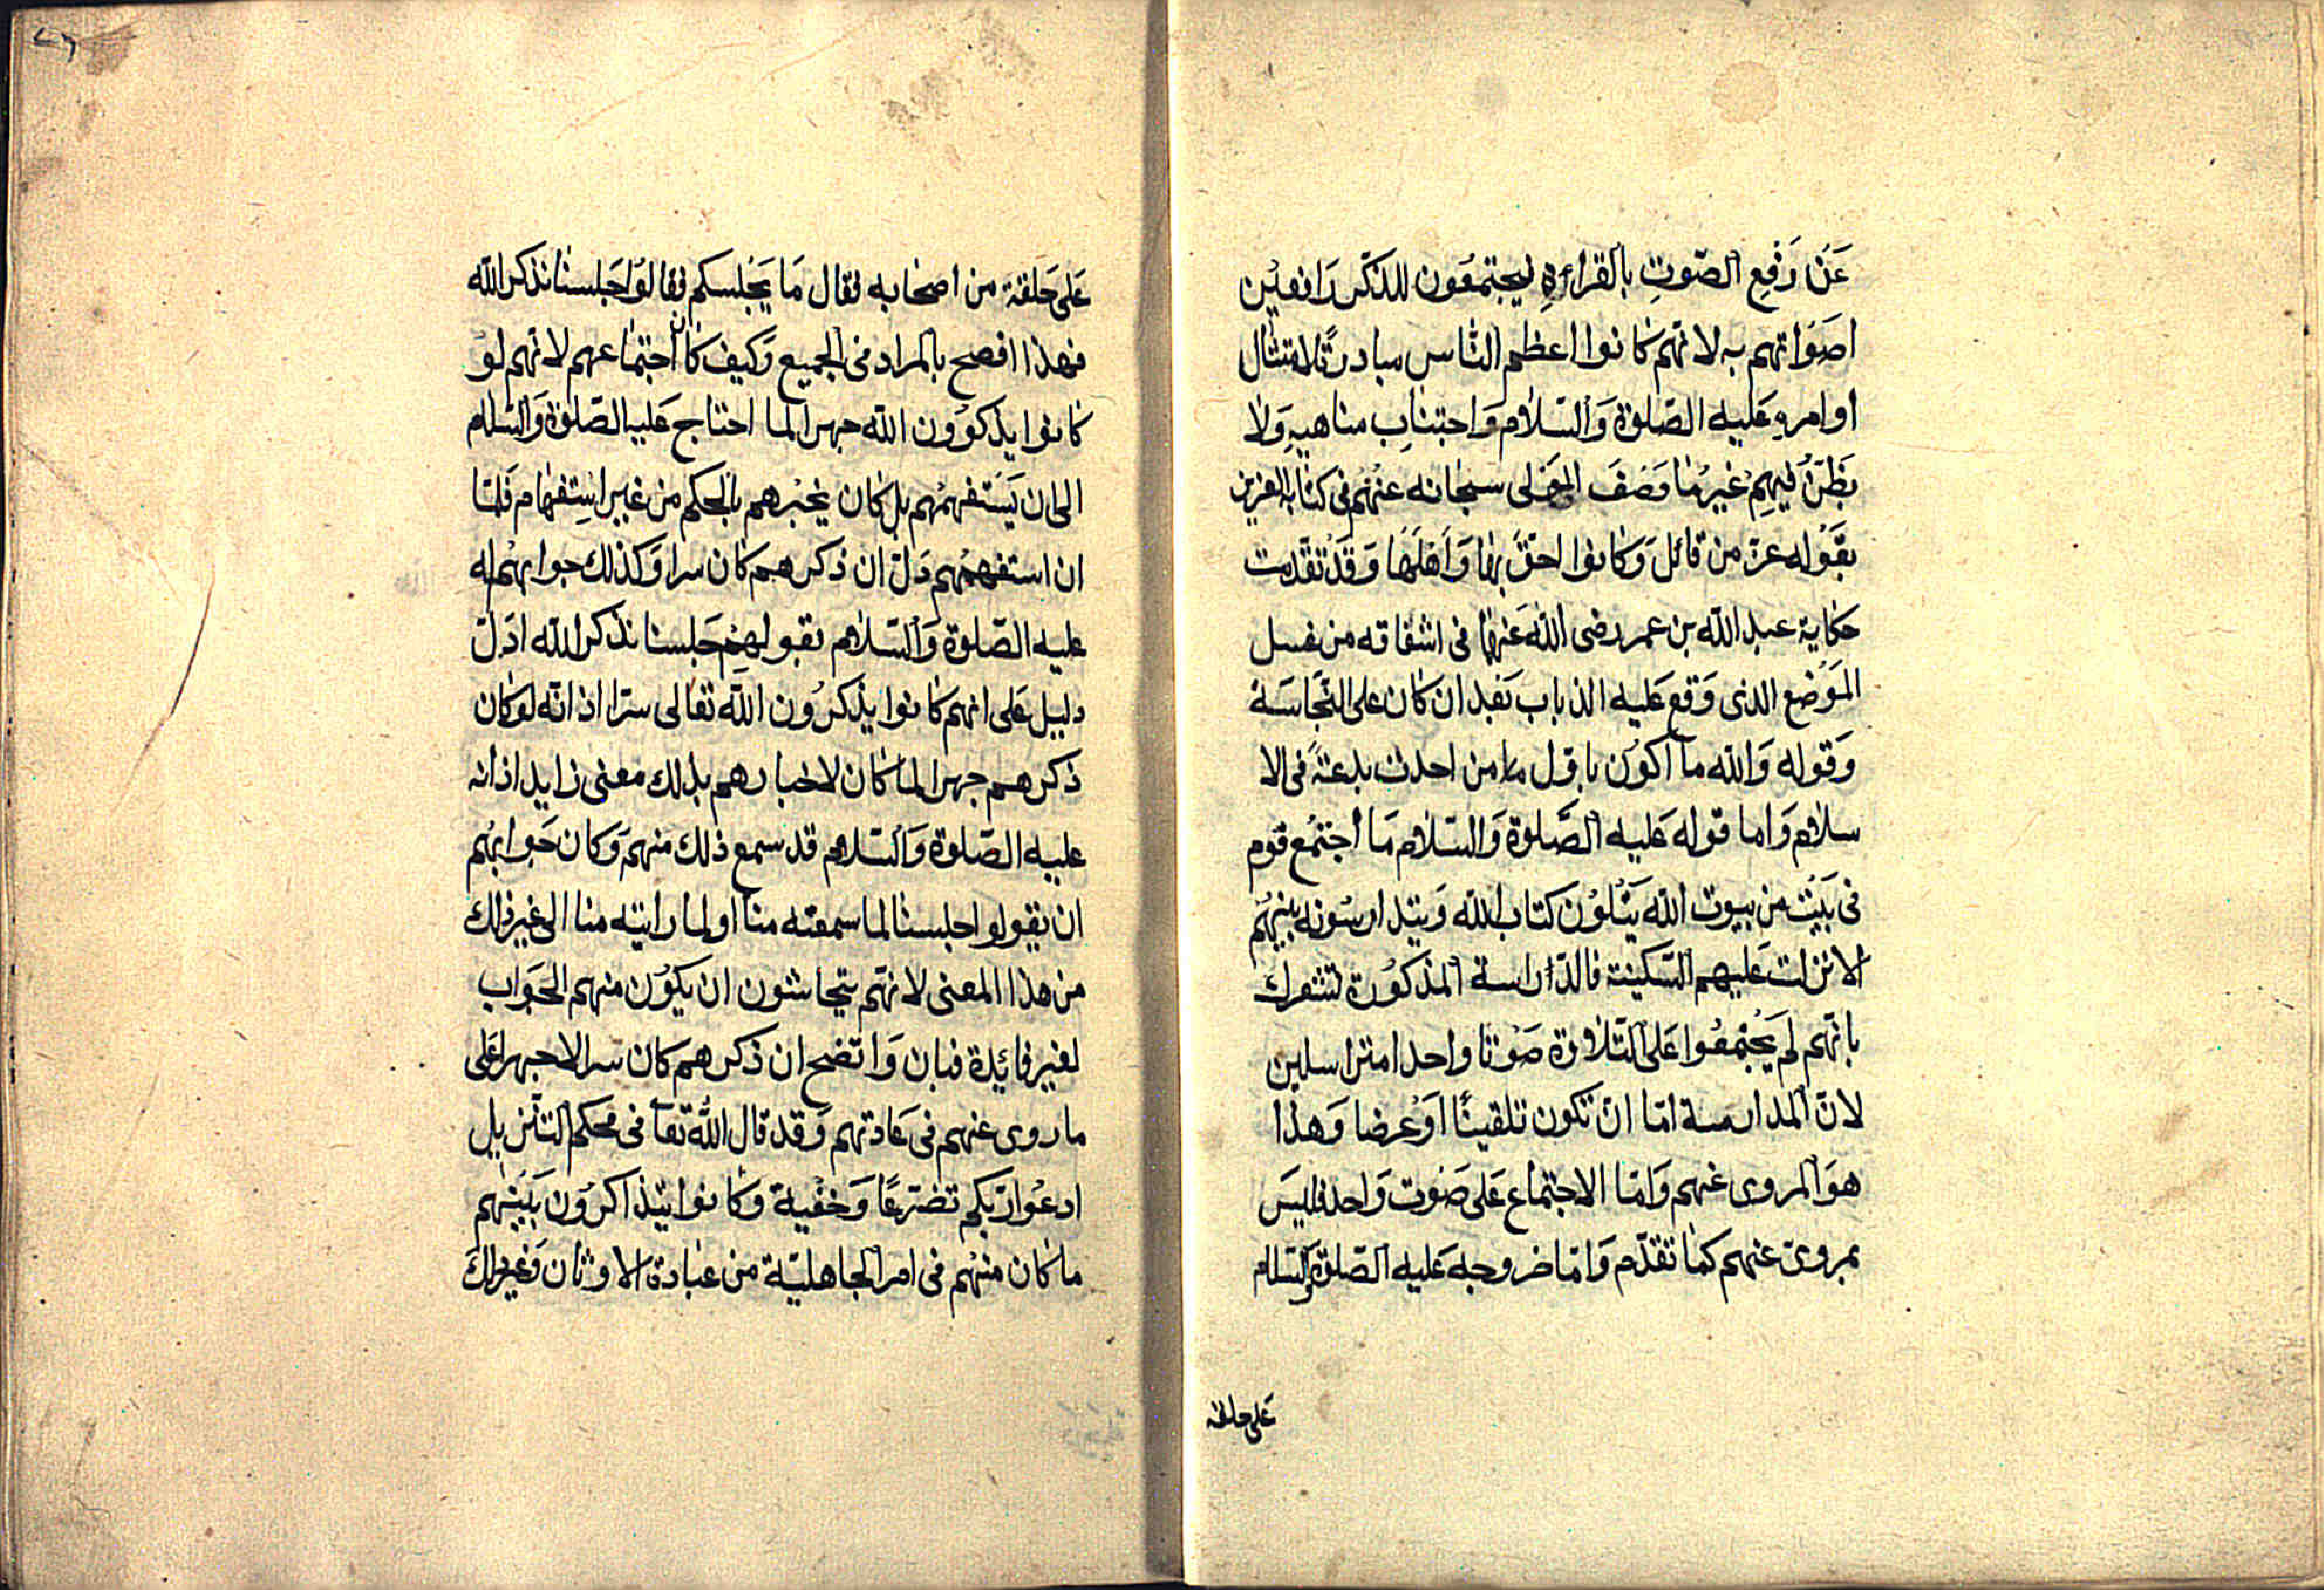 عَنْ رَفْعِ الصّوتِ بالقراءةِ ليجتمعُون للذكّر رَافعيْن
اصَوَاتهم به لانّهم كانوا اعظم النّاس مبادرةً لامتثال
اوامرهِ عَليه الصّلوة وَالسّلام وَاجتنابِ مناهيهِ وَلا
يظنّ فيهِم غيرُ ما وَصَفَ المولى سبحانه عنْهُم فى كتابه العزيز
بقَوْله عزّ من قائل وَكانوا احقّ بها وَاهْلهَا وَقَدْ تقدّمت
حكاية عبد الله بن عمر رضى الله عَنهما فى اشفاقه من غسل
الموَضع الذى وَقع عَليه الذباب بَعْد ان كان على النّجاسَة
وَقوله وَالله ما اكوُن باوّل من احدث بدعَةً فى الا
سلام وَاما قوله عَليه الصَّلوة وَالسّلام مَا اجتمْع قوم
فى بَيْت من بيوت الله يَتْلوُن كتاب الله وَيتدارسُونه بينهُم
الا نزلت عَليهم السّكينة فالدّراسة المذكوُرة تشعرك
بانّهم لم يجْتمعُوا عَلى التّلاوة صَوْتا واحدا متراسلين
لانّ المدارسة امّا انّ تكون تلقينًا اوْعرضا وَهذا
هوَ المروى عنهم وَامّا الاجتماع عَلى صَوت وَاحد فليسَ
بمروىّ عنهم كما تقدّم وَامّا خروجه عَليه الصّلوة وَالسّلام
عَلى حلقة
عَلى حَلقة من اصحابه فقال مَا يَجْلسكم فقالوُا جَلسنا نذكر الله
فهذا افصح بالمراد فى الجميع وَكيف كان اجتماعهم لانهم لوْ
كانوا يذكروُن الله جهرا لما احتاج عَليه الصّلوة وَالسّلام
الى ان يَسْتفهمُهم بل كان يخبْرهم بالحكم من غير استِفهام فَلمّا
ان استفهمُهم دَلّ ان ذكرهم كان سرا وَكذلك جوابهُم له
عليه الصّلوة وَالسّلام بقولهِم جَلسنا نذكر الله ادَلّ
دليل عَلى انهم كانوا يذكرُون الله تعالى سرّا اذ انّه لوْكان
ذكرهم جهرا لما كان لاخبارهم بذلك معنى زايد اذ انه
عليه الصّلوة وَالسّلام قد سمع ذلك منهم وَكان جَوابهُم
ان يقولوا جلسنا لما سمعته منا او لما رايته منا الى غير ذلك
من هذا المعنى لانهّم يتحاشون ان يكوُن منهم الجَواب
لغير فائِدة فبان وَاتضح ان ذكرهم كان سرا لا جهرا عَلى
ما روى عنهم فى عَادتهم وَقد قال الله تعآ فى محكم التنزيل
ادعوُا ربّكم تضرّعًا وَخفْية وكانوا يتذاكرُون بَيْنهم
ما كان منهُم فى امر الجاهليّة من عبادة الاوثان وَغير ذلك